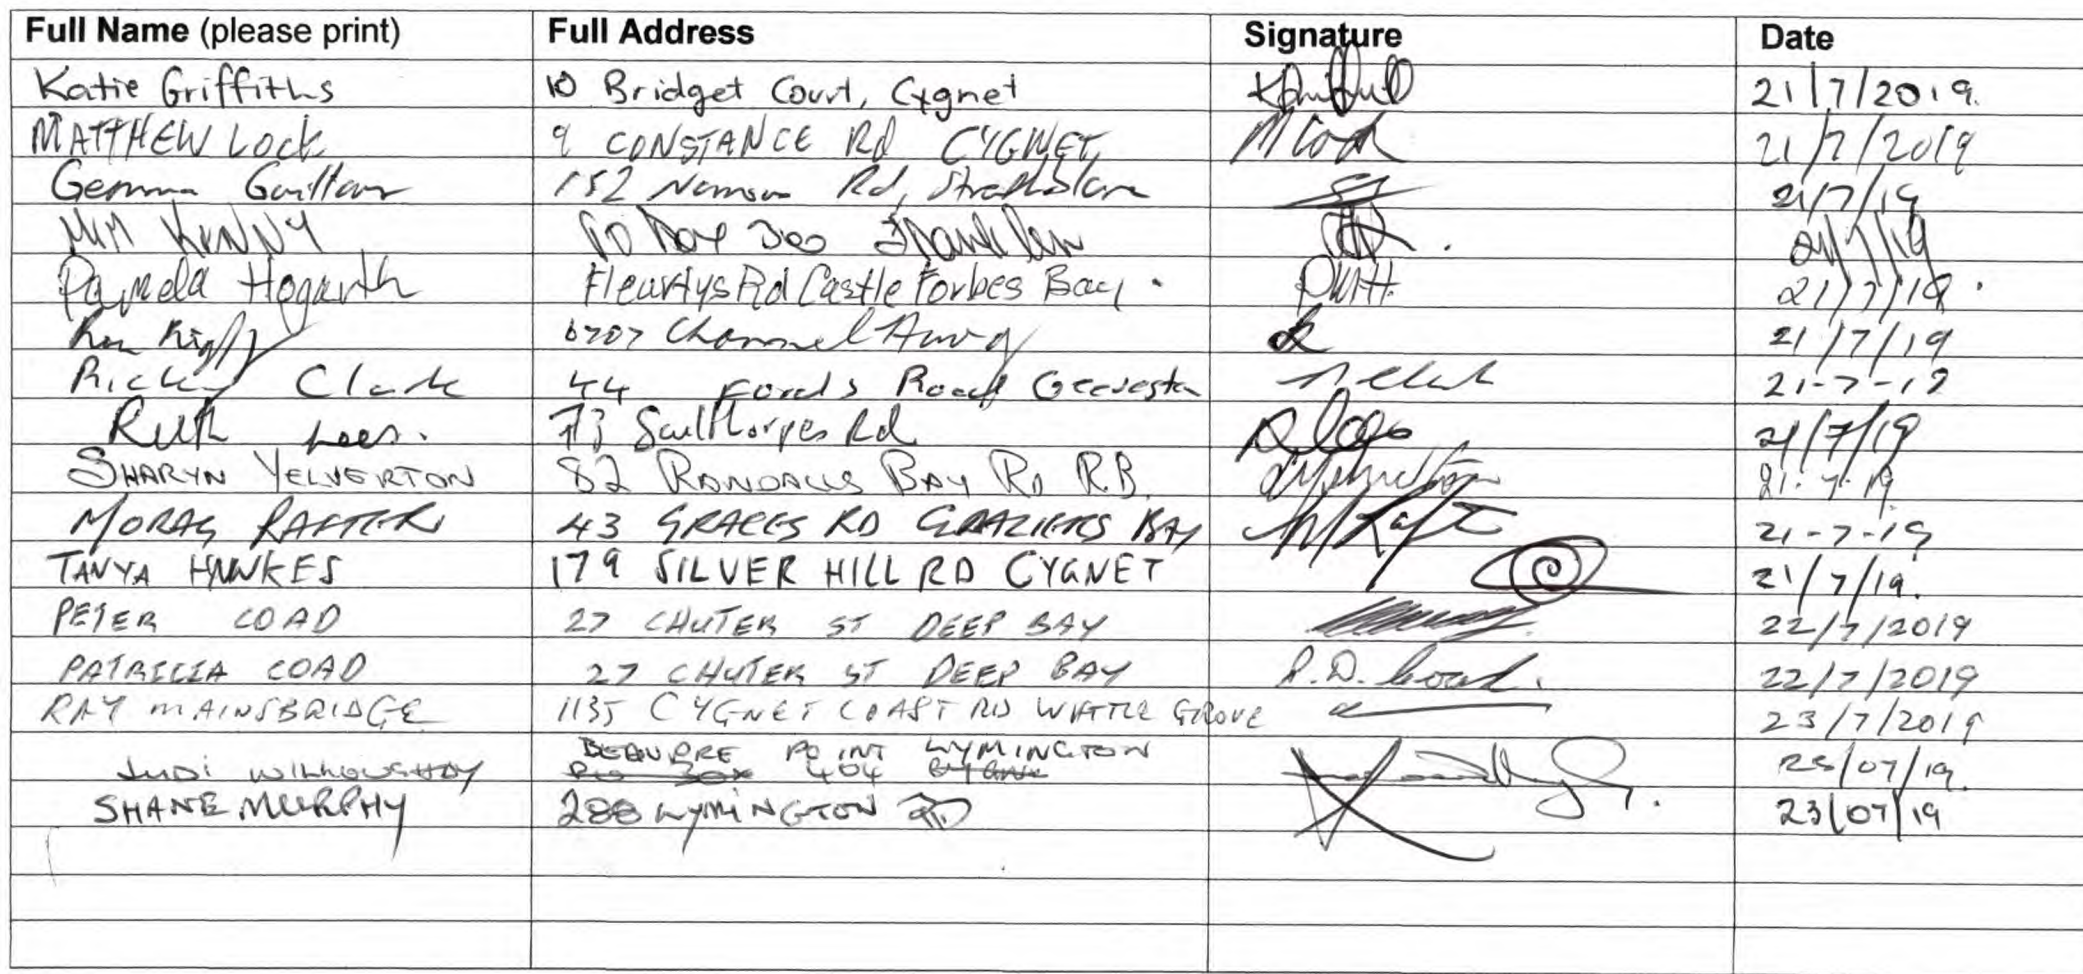 Full Name (please print) Full Address Signature Date
Katie Griffiths 10 Bridget Court, Cygnet 21/7/2019.
MATTHEW LOCK 9 CONSTANCE Rd CYGNET M Lock 21/7/2019
Gemma 152 Rd, Strathblane 21/7/19
KENNY PO Box Franklin 21/7/19
Pamela Hogarth Fleurtys Rd Castle Forbes Bay. 21/7/19.
Channel 21/7/19
Ricky Clark 44 Fords Road Geeveston 21-7-19
Ruth Lees. 73 Scullthorpes Rd 21/7/19
SHARYN YELVERTON 82 RANDALLS BAY RD R.B. 21.7.19
MORAG RAFTER 43 GRACES RD GLAZIERS BAY 21-7-19
TANYA HAWKES 179 SILVER HILL RD CYGNET 21/7/19.
PETER COAD 27 CHUTER ST DEEP BAY 22/7/2019
PATRICIA COAD 27 CHUTER ST DEEP BAY P.D. Coad. 22/7/2019
RAY MAINSBRIDGE 1135 CYGNET COAST RD WATTLE GROVE 23/7/2019
BEAUPRE POINT LYMINGTON
JUDI WILLOUGHBY 404 /07/19.
SHANE MURPHY LYMINGTON RD 23/07/19